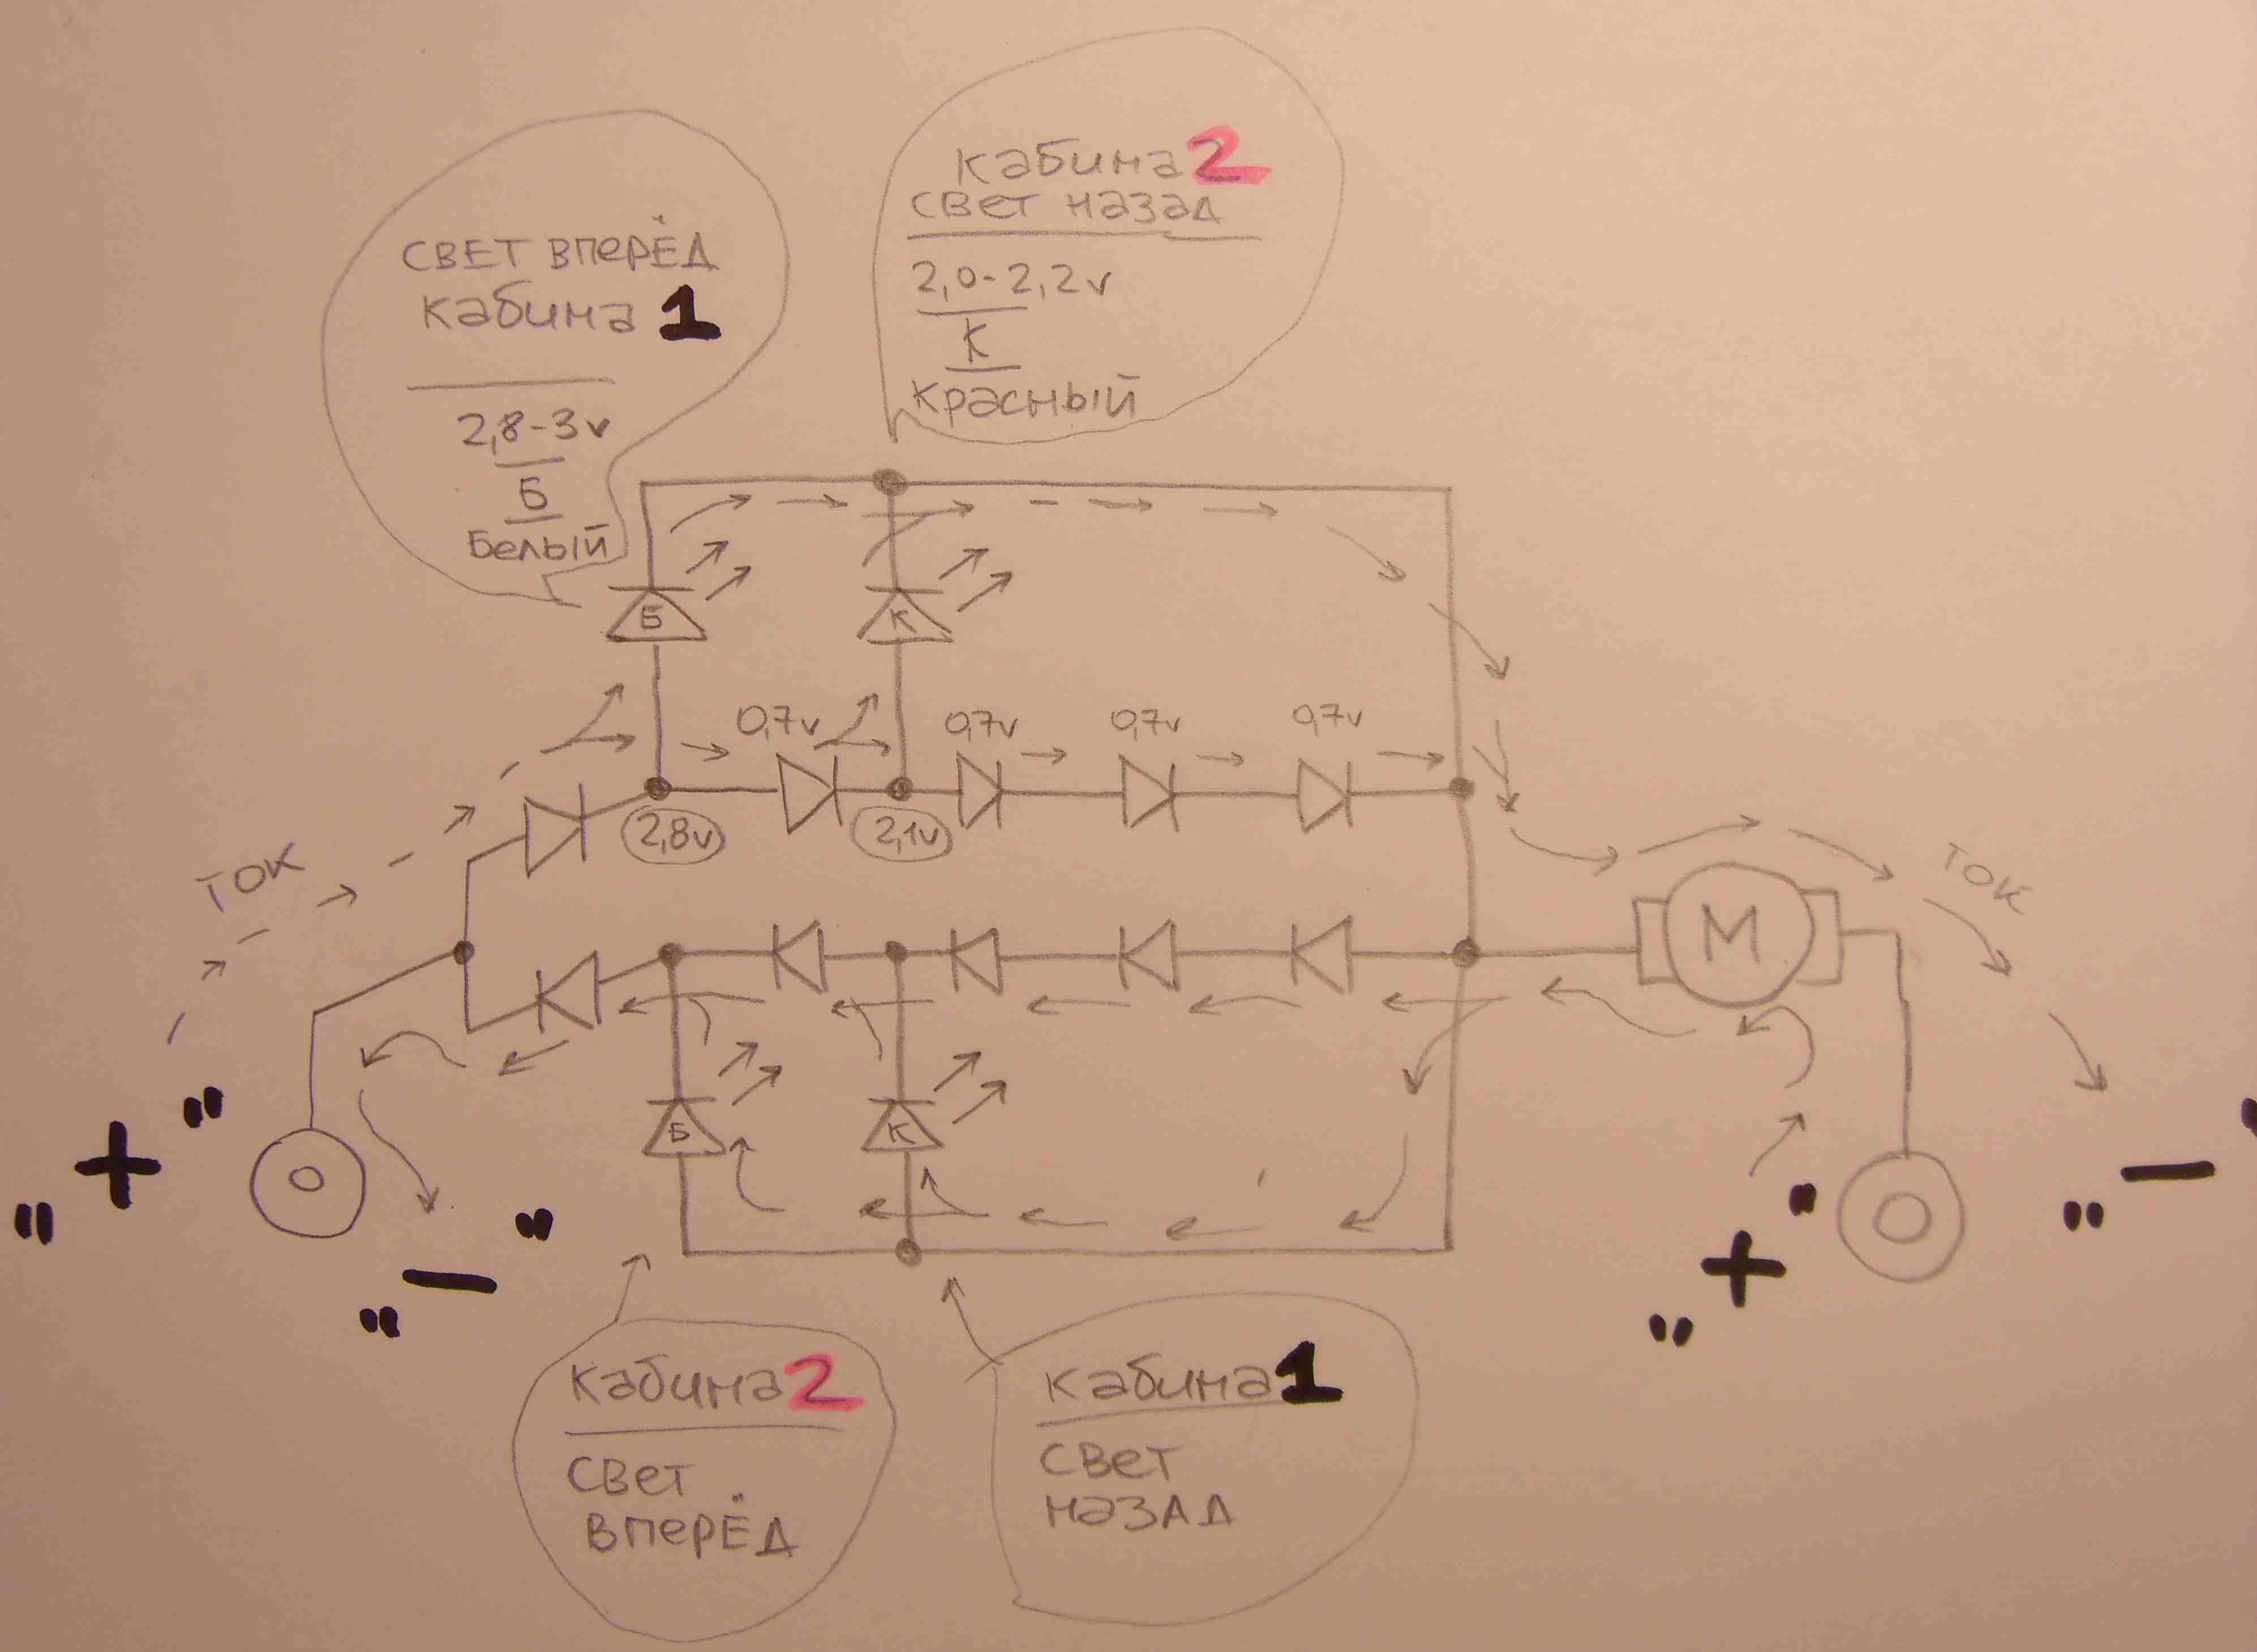 кабина 2
свет назад
2,0-2,2v
К
красный
СВЕТ вперЁД
кабина 1
2,8-3v
Б
Белый
Б
К
0,7v
0,7v
0,7v
0,7v
2,8v
2,1v
ТОК
ТОК
М
Б
К
„+"
„-"
„+"
„-"
кабина 2
свет
вперЁД
кабина 1
свет
назАД